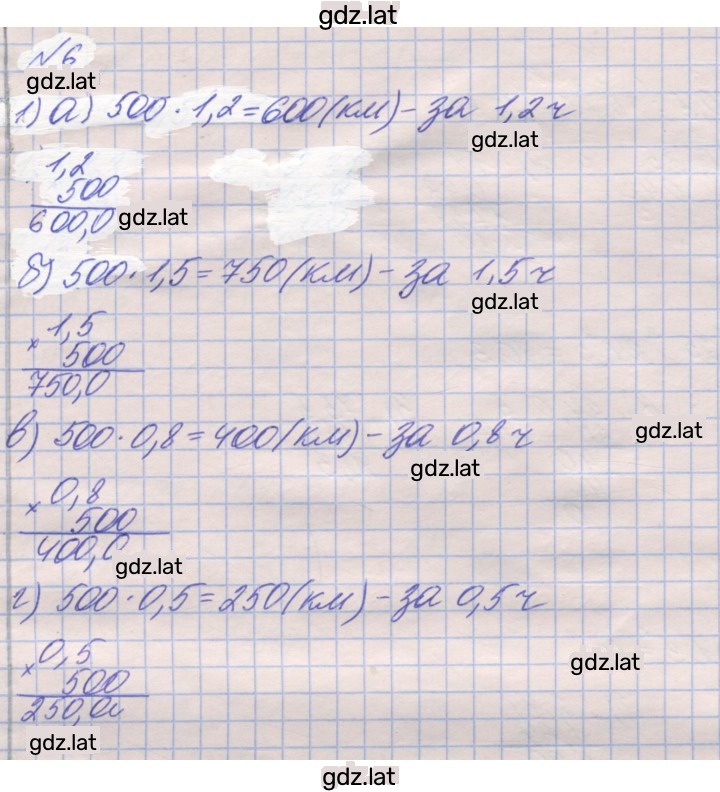 gdz.lat
№6
gdz.lat
1) а) 500 · 1,2 = 600 (км) – за 1,2 ч
gdz.lat
1,2
500
600,0 gdz.lat
б) 500 · 1,5 = 750 (км) – за 1,5 ч
gdz.lat
× 1,5
500
750,0
в) 500 · 0,8 = 400 (км) – за 0,8 ч
gdz.lat
gdz.lat
× 0,8
500
400,0
gdz.lat
г) 500 · 0,5 = 250 (км) – за 0,5 ч
× 0,5
gdz.lat
500
250,0
gdz.lat
gdz.lat